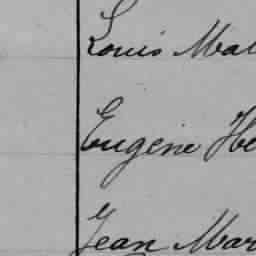 Louis Mal
Eugène He
Jean Mar